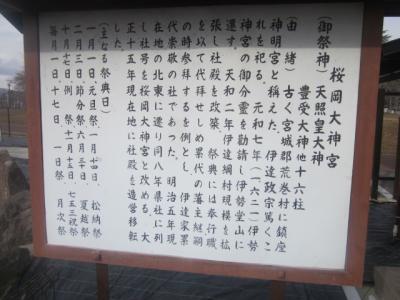 桜岡大神宮
(御祭神)天照皇大神
豊受大神他十六柱
(由緒)古く宮城郡荒巻村に鎮座
神明宮と称えた。伊達政宗篤くこ
れを祀る。元和七年(一六二一)伊勢
神宮の御分霊を勧請し伊勢堂山に
遷す。天和二年伊達綱村規模を拡
張し社殿を改築、祭典には奉行職
を以て代拝せしめ累代の藩主継嗣
の時参拝するを例とし、伊達家累
代崇敬の社であった。明治五年現
在地の北東に遷り同八年県社に列
し社号を桜岡大神宮と改める。大
正十五年現在地に社殿を造営移転
(主なる祭典日)
一月一日元旦祭一月十四日、松納祭
二月三日節分祭六月三十日、夏越祭
十月十七日例祭十一月十五日、七五三祝祭
毎月一日十七日、十一日月次祭